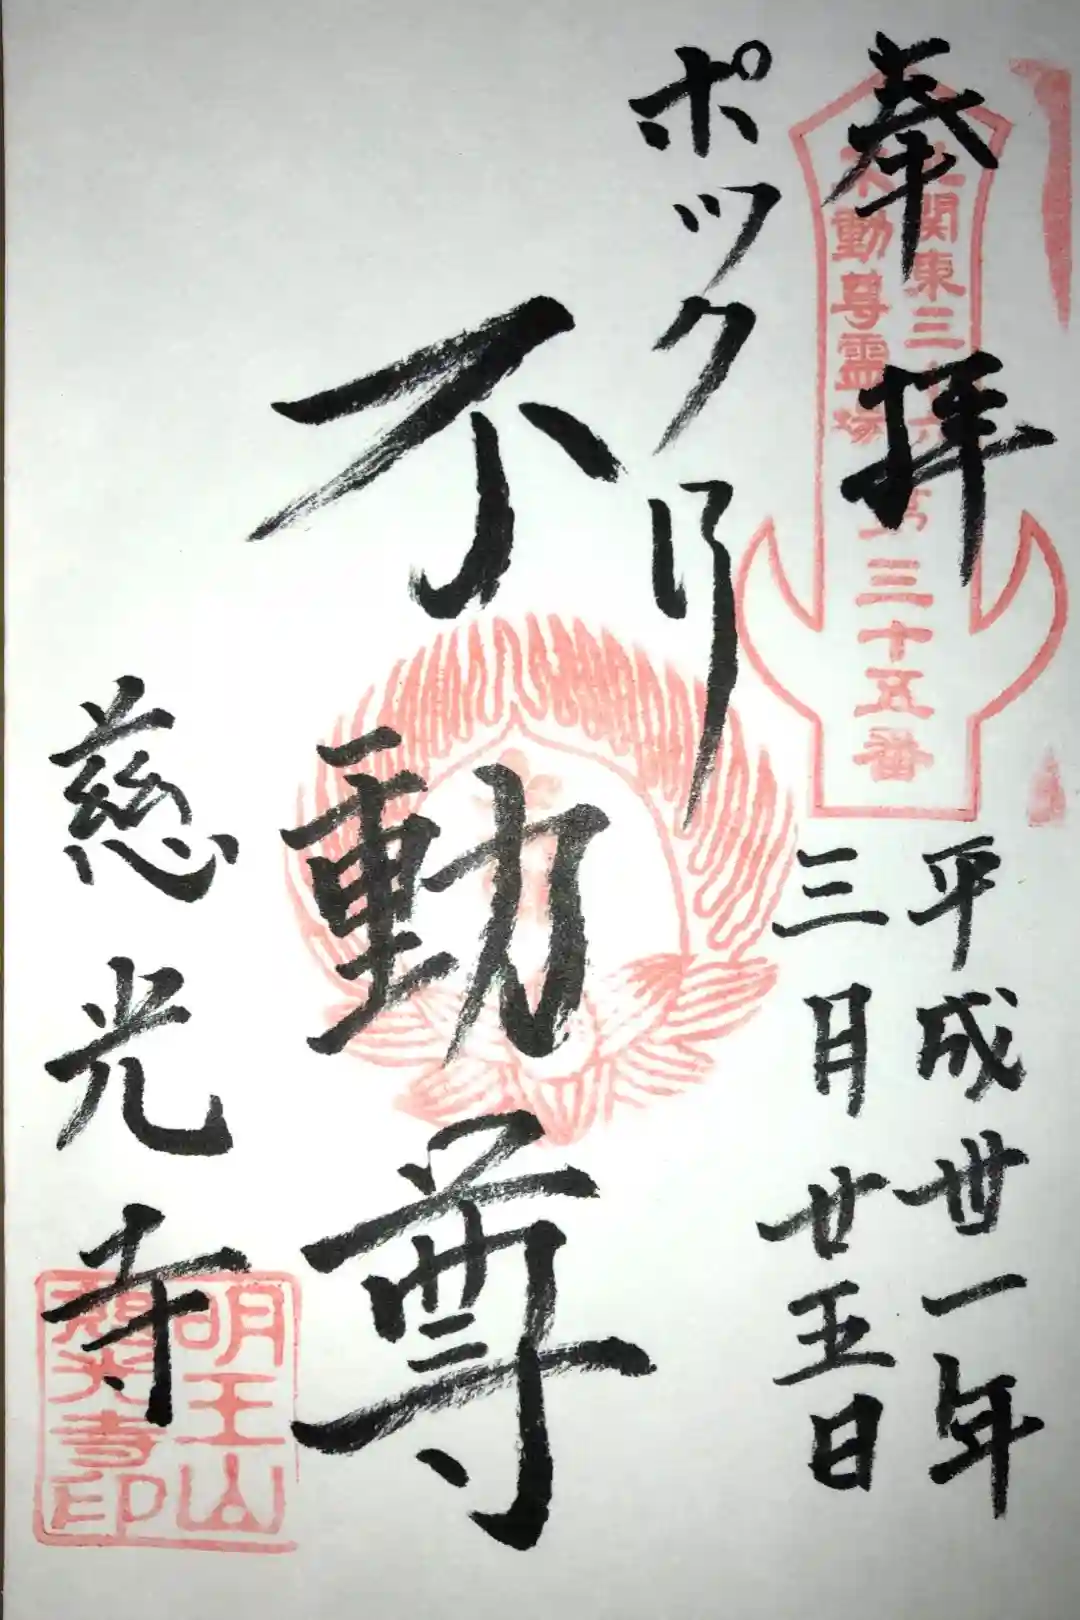 奉拝
北関東三十六
不動尊霊場
第三十五番
平成丗一年
三月廿五日
ポックリ
不動尊
慈光寺
明王山
慈光寺印